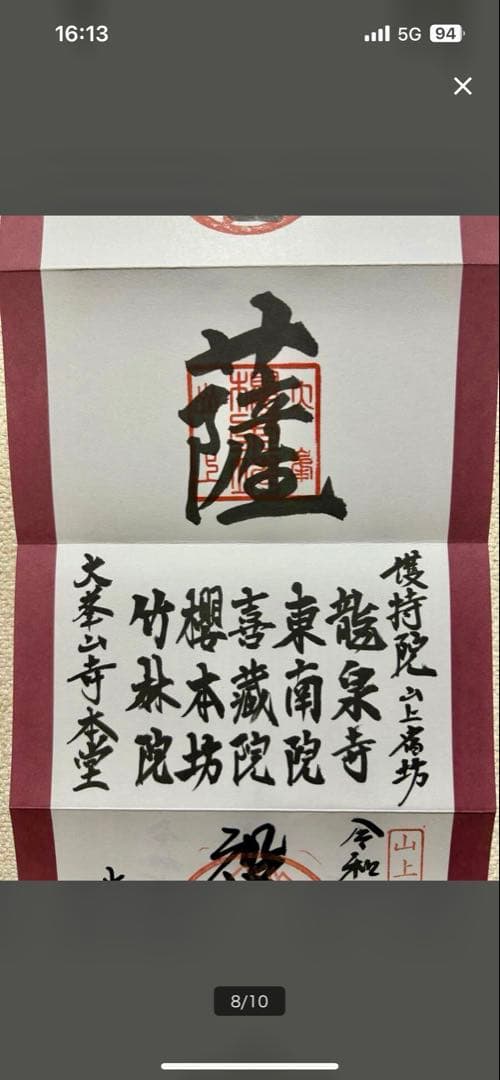 16:13
5G
94
薩
護持院 山上宿坊
龍泉寺
東南院
喜藏院
櫻本坊
竹林院
大峯山寺本堂
令和
山上
8/10